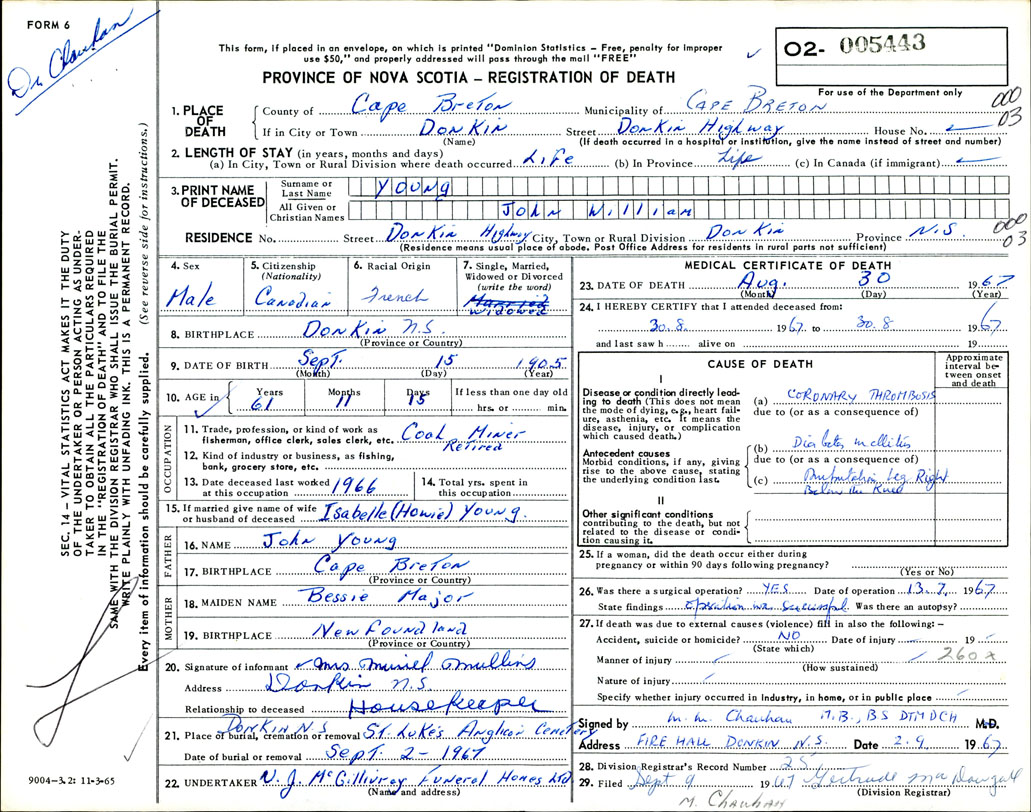 FORM 6
Dr. Chauhan
This form, if placed in an envelope, on which is printed "Dominion Statistics – Free, penalty for improper
use $50," and properly addressed will pass through the mail "FREE"
PROVINCE OF NOVA SCOTIA – REGISTRATION OF DEATH
02- 005443
For use of the Department only
000
03
1. PLACE OF DEATH County of Cape Breton Municipality of CAPE BRETON
If in City or Town DonKin Street DonKin Highway House No.
(Name) (If death occurred in a hospital or institution, give the name instead of street and number)
2. LENGTH OF STAY (in years, months and days)
(a) In City, Town or Rural Division where death occurred Life (b) In Province Life (c) In Canada (if immigrant)
3. PRINT NAME OF DECEASED
Surname or Last Name YOUNG
All Given or Christian Names John William
000
03
RESIDENCE No. Street DonKin Highway City, Town or Rural Division DonKin Province N.S
(Residence means usual place of abode. Post Office Address for residents in rural parts not sufficient)
4. Sex Male
5. Citizenship (Nationality) Canadian
6. Racial Origin French
7. Single, Married, Widowed or Divorced (write the word) Married Widowed
8. BIRTHPLACE DonKin N.S.
(Province or Country)
9. DATE OF BIRTH Sept. 15 1905
(Month) (Day) (Year)
10. AGE in Years 61 Months 11 Days 15 If less than one day old hrs. or min.
OCCUPATION
11. Trade, profession, or kind of work as fisherman, office clerk, sales clerk, etc. Coal Miner
Retired
12. Kind of industry or business, as fishing, bank, grocery store, etc.
13. Date deceased last worked at this occupation 1966
14. Total yrs. spent in this occupation
15. If married give name of wife or husband of deceased Isabelle (Howie) Young.
FATHER
16. NAME John Young
17. BIRTHPLACE Cape Breton
(Province or Country)
MOTHER
18. MAIDEN NAME Bessie Major
19. BIRTHPLACE Newfoundland
(Province or Country)
20. Signature of informant Mrs Muriel Mullins
Address Donkin N.S.
Relationship to deceased Housekeeper
21. Place of burial, cremation or removal Donkin N.S St. Lukes Anglican Cemetery
Date of burial or removal Sept. 2-1967
22. UNDERTAKER V. J. McGillivray Funeral Homes Ltd
(Name and address)
MEDICAL CERTIFICATE OF DEATH
23. DATE OF DEATH Aug. 30 1967
(Month) (Day) (Year)
24. I HEREBY CERTIFY that I attended deceased from:
30.8. 1967. to 30.8 1967
and last saw h alive on 19
CAUSE OF DEATH
Approximate interval between onset and death
I
Disease or condition directly leading to death (This does not mean the mode of dying, e.g., heart failure, asthenia, etc. It means the disease, injury, or complication which caused death.)
(a) CORONARY THROMBOSIS
due to (or as a consequence of)
Antecedent causes
Morbid conditions, if any, giving rise to the above cause, stating the underlying condition last.
(b) Diabetes mellitus
due to (or as a consequence of)
(c) Amputation Leg Right
Below the Knee
II
Other significant conditions
contributing to the death, but not related to the disease or condition causing it.
25. If a woman, did the death occur either during
pregnancy or within 90 days following pregnancy?
(Yes or No)
26. Was there a surgical operation? YES Date of operation 13.7. 1967
State findings operation was successful Was there an autopsy?
27. If death was due to external causes (violence) fill in also the following: –
Accident, suicide or homicide? NO Date of injury 19
(State which)
260x
Manner of injury
(How sustained)
Nature of injury
Specify whether injury occurred in industry, in home, or in public place
Signed by M. M. Chauhan M.B., BS DTM DCH M.D.
Address FIRE HALL DONKIN N.S. Date 2.9. 1967
28. Division Registrar's Record Number 25
29. Filed Sept 9 1967 Gertrude MacDougall
(Division Registrar)
M. Chauhan
SEC. 14 – VITAL STATISTICS ACT MAKES IT THE DUTY
OF THE UNDERTAKER OR PERSON ACTING AS UNDER-
TAKER TO OBTAIN ALL THE PARTICULARS REQUIRED
IN THE "REGISTRATION OF DEATH" AND TO FILE THE
SAME WITH THE DIVISION REGISTRAR WHO SHALL ISSUE THE BURIAL PERMIT.
WRITE PLAINLY WITH UNFADING INK. THIS IS A PERMANENT RECORD.
Every item of information should be carefully supplied. (See reverse side for instructions.)
9004-3.2: 11-3-65